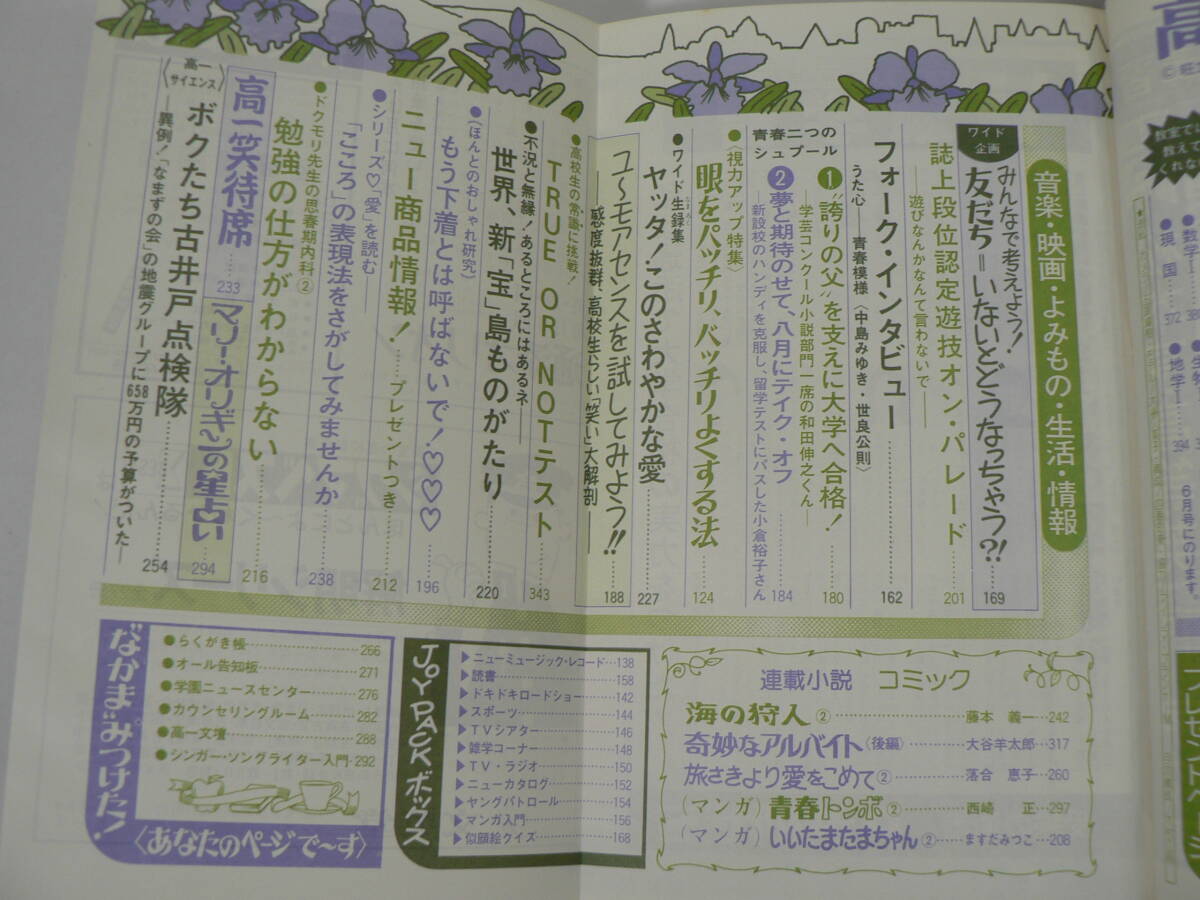 音楽・映画・よみもの・生活・情報
ワイド企画
みんなで考えよう!
友だち=いないとどうなっちゃう?! 169
誌上段位認定遊技オン・パレード……201
――遊びなんかなんて言わないで――
フォーク・インタビュー……162
うた心――青春模様〈中島みゆき・世良公則〉
青春二つのシュプール
❶“誇りの父”を支えに大学へ合格!……180
――学芸コンクール小説部門一席の和田伸之くん――
❷夢と期待のせて、八月にテイク・オフ……184
新設校のハンディを克服し、留学テストにパスした小倉裕子さん
●〈視力アップ特集〉
眼をパッチリ、バッチリよくする法……124
●ワイド生録集
なまろく
ヤッタ!このさわやかな愛……227
ユ〜モアセンスを試してみよう!! 188
――感度抜群、高校生らしい「笑い」大解剖――
●高校生の常識に挑戦!
TRUE OR NOTテスト……343
●不況と無縁!あるところにはあるネ――
世界、新「宝」島ものがたり……220
●〈ほんとのおしゃれ研究〉
もう下着とは呼ばないで!♡♡♡……196
ニュー商品情報!……プレゼントつき……212
●シリーズ♡「愛」を読む――
「こころ」の表現法をさがしてみませんか……238
●ドクモリ先生の思春期内科②
勉強の仕方がわからない……216
高一笑待席……233
マリー・オリギンの星占い……294
〈高一サイエンス〉
ボクたち古井戸点検隊……254
――異例!「なまずの会」の地震グループに658万円の予算がついた――
“なかま”みつけた!
●らくがき帳……266
●オール告知板……271
●学園ニュースセンター……276
●カウンセリングルーム……282
●高一文壇……288
●シンガー・ソングライター入門…292
〈あなたのページで〜す〉
JOY PACK ボックス
▶ニューミュージック・レコード…138
▶読書……158
▶ドキドキロードショー……142
▶スポーツ……144
▶TVシアター……146
▶雑学コーナー……148
▶TV・ラジオ……150
▶ニューカタログ……152
▶ヤングパトロール……154
▶マンガ入門……156
▶似顔絵クイズ……168
連載小説 コミック
海の狩人②……藤本 義一…242
奇妙なアルバイト(後編)……大谷羊太郎…317
旅さきより愛をこめて②……落合 恵子…260
(マンガ)青春トンボ②……西崎 正…297
(マンガ)いいたまたまちゃん②……ますだみつこ…208
高
数学I
現国……372
地学I……394
6月号にのります。